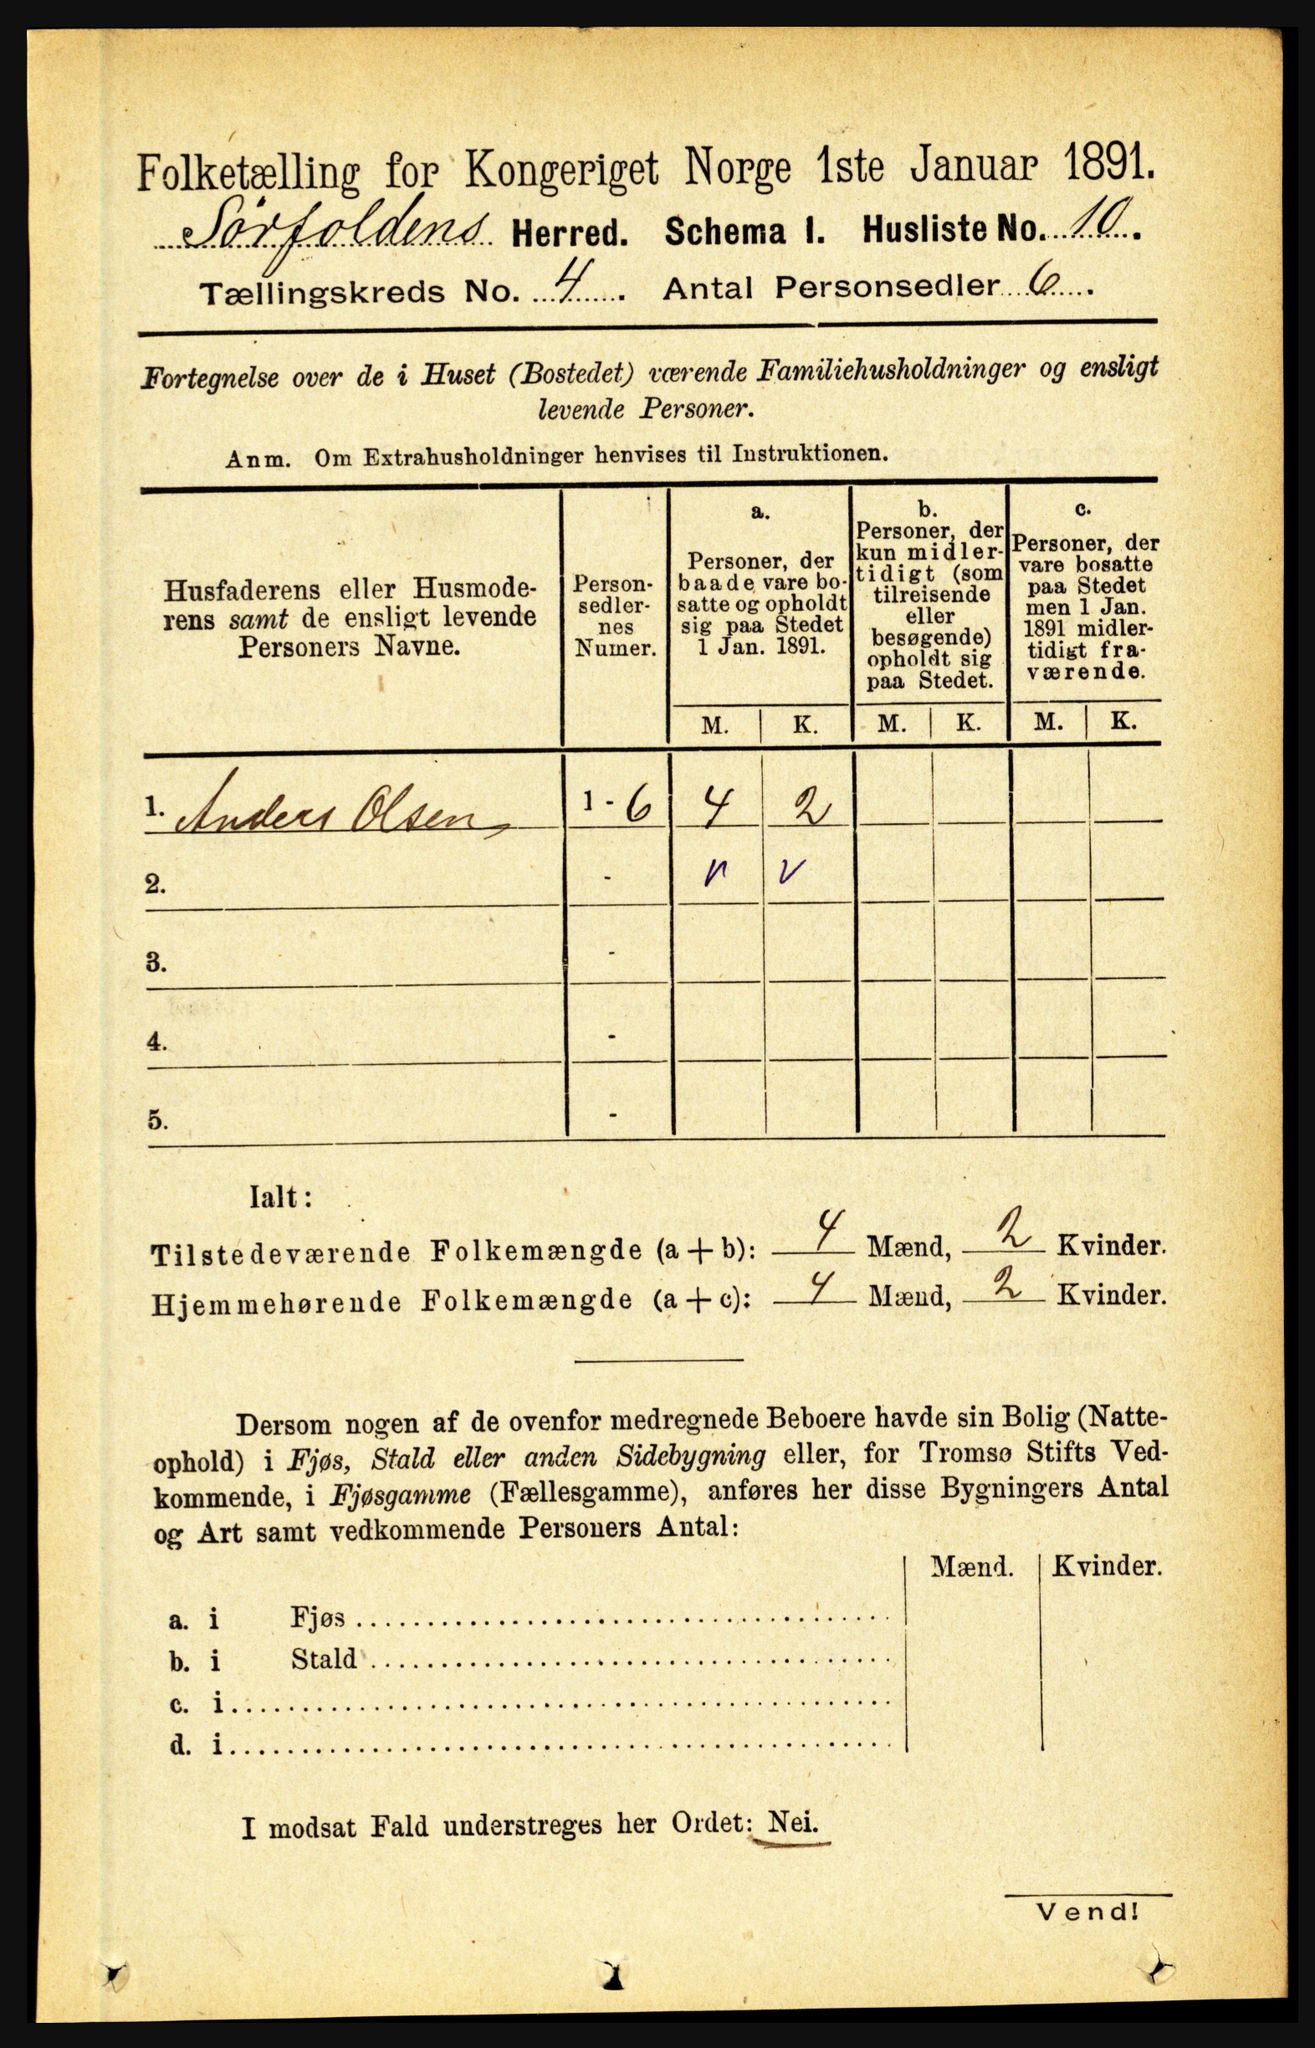 Folketælling for Kongeriget Norge 1ste Januar 1891.
Sørfoldens Herred. Schema I. Husliste No. 10.
Tællingskreds No. 4. Antal Personsedler 6.
Fortegnelse over de i Huset (Bostedet) værende Familiehusholdninger og ensligt
levende Personer.
Anm. Om Extrahusholdninger henvises til Instruktionen.
Husfaderens eller Husmode-
rens samt de ensligt levende
Personers Navne.
Person-
sedler-
nes
Numer.
a.
Personer, der
baade vare bo-
satte og opholdt
sig paa Stedet
1 Jan. 1891.
b.
Personer, der
kun midler-
tidigt (som
tilreisende
eller
besøgende)
opholdt sig
paa Stedet.
c.
Personer, der
vare bosatte
paa Stedet
men 1 Jan.
1891 midler-
tidigt fra-
værende.
M. K. M. K. M. K.
1. Anders Olsen 1 - 6 4 2
2. -
3. -
4. -
5. -
Ialt:
Tilstedeværende Folkemængde (a + b): 4 Mænd, 2 Kvinder.
Hjemmehørende Folkemængde (a + c): 4 Mænd, 2 Kvinder.
Dersom nogen af de ovenfor medregnede Beboere havde sin Bolig (Natte-
ophold) i Fjøs, Stald eller anden Sidebygning eller, for Tromsø Stifts Ved-
kommende, i Fjøsgamme (Fællesgamme), anføres her disse Bygningers Antal
og Art samt vedkommende Personers Antal:
Mænd. Kvinder.
a. i Fjøs
b. i Stald
c. i
d. i
I modsat Fald understreges her Ordet: Nei.
Vend!